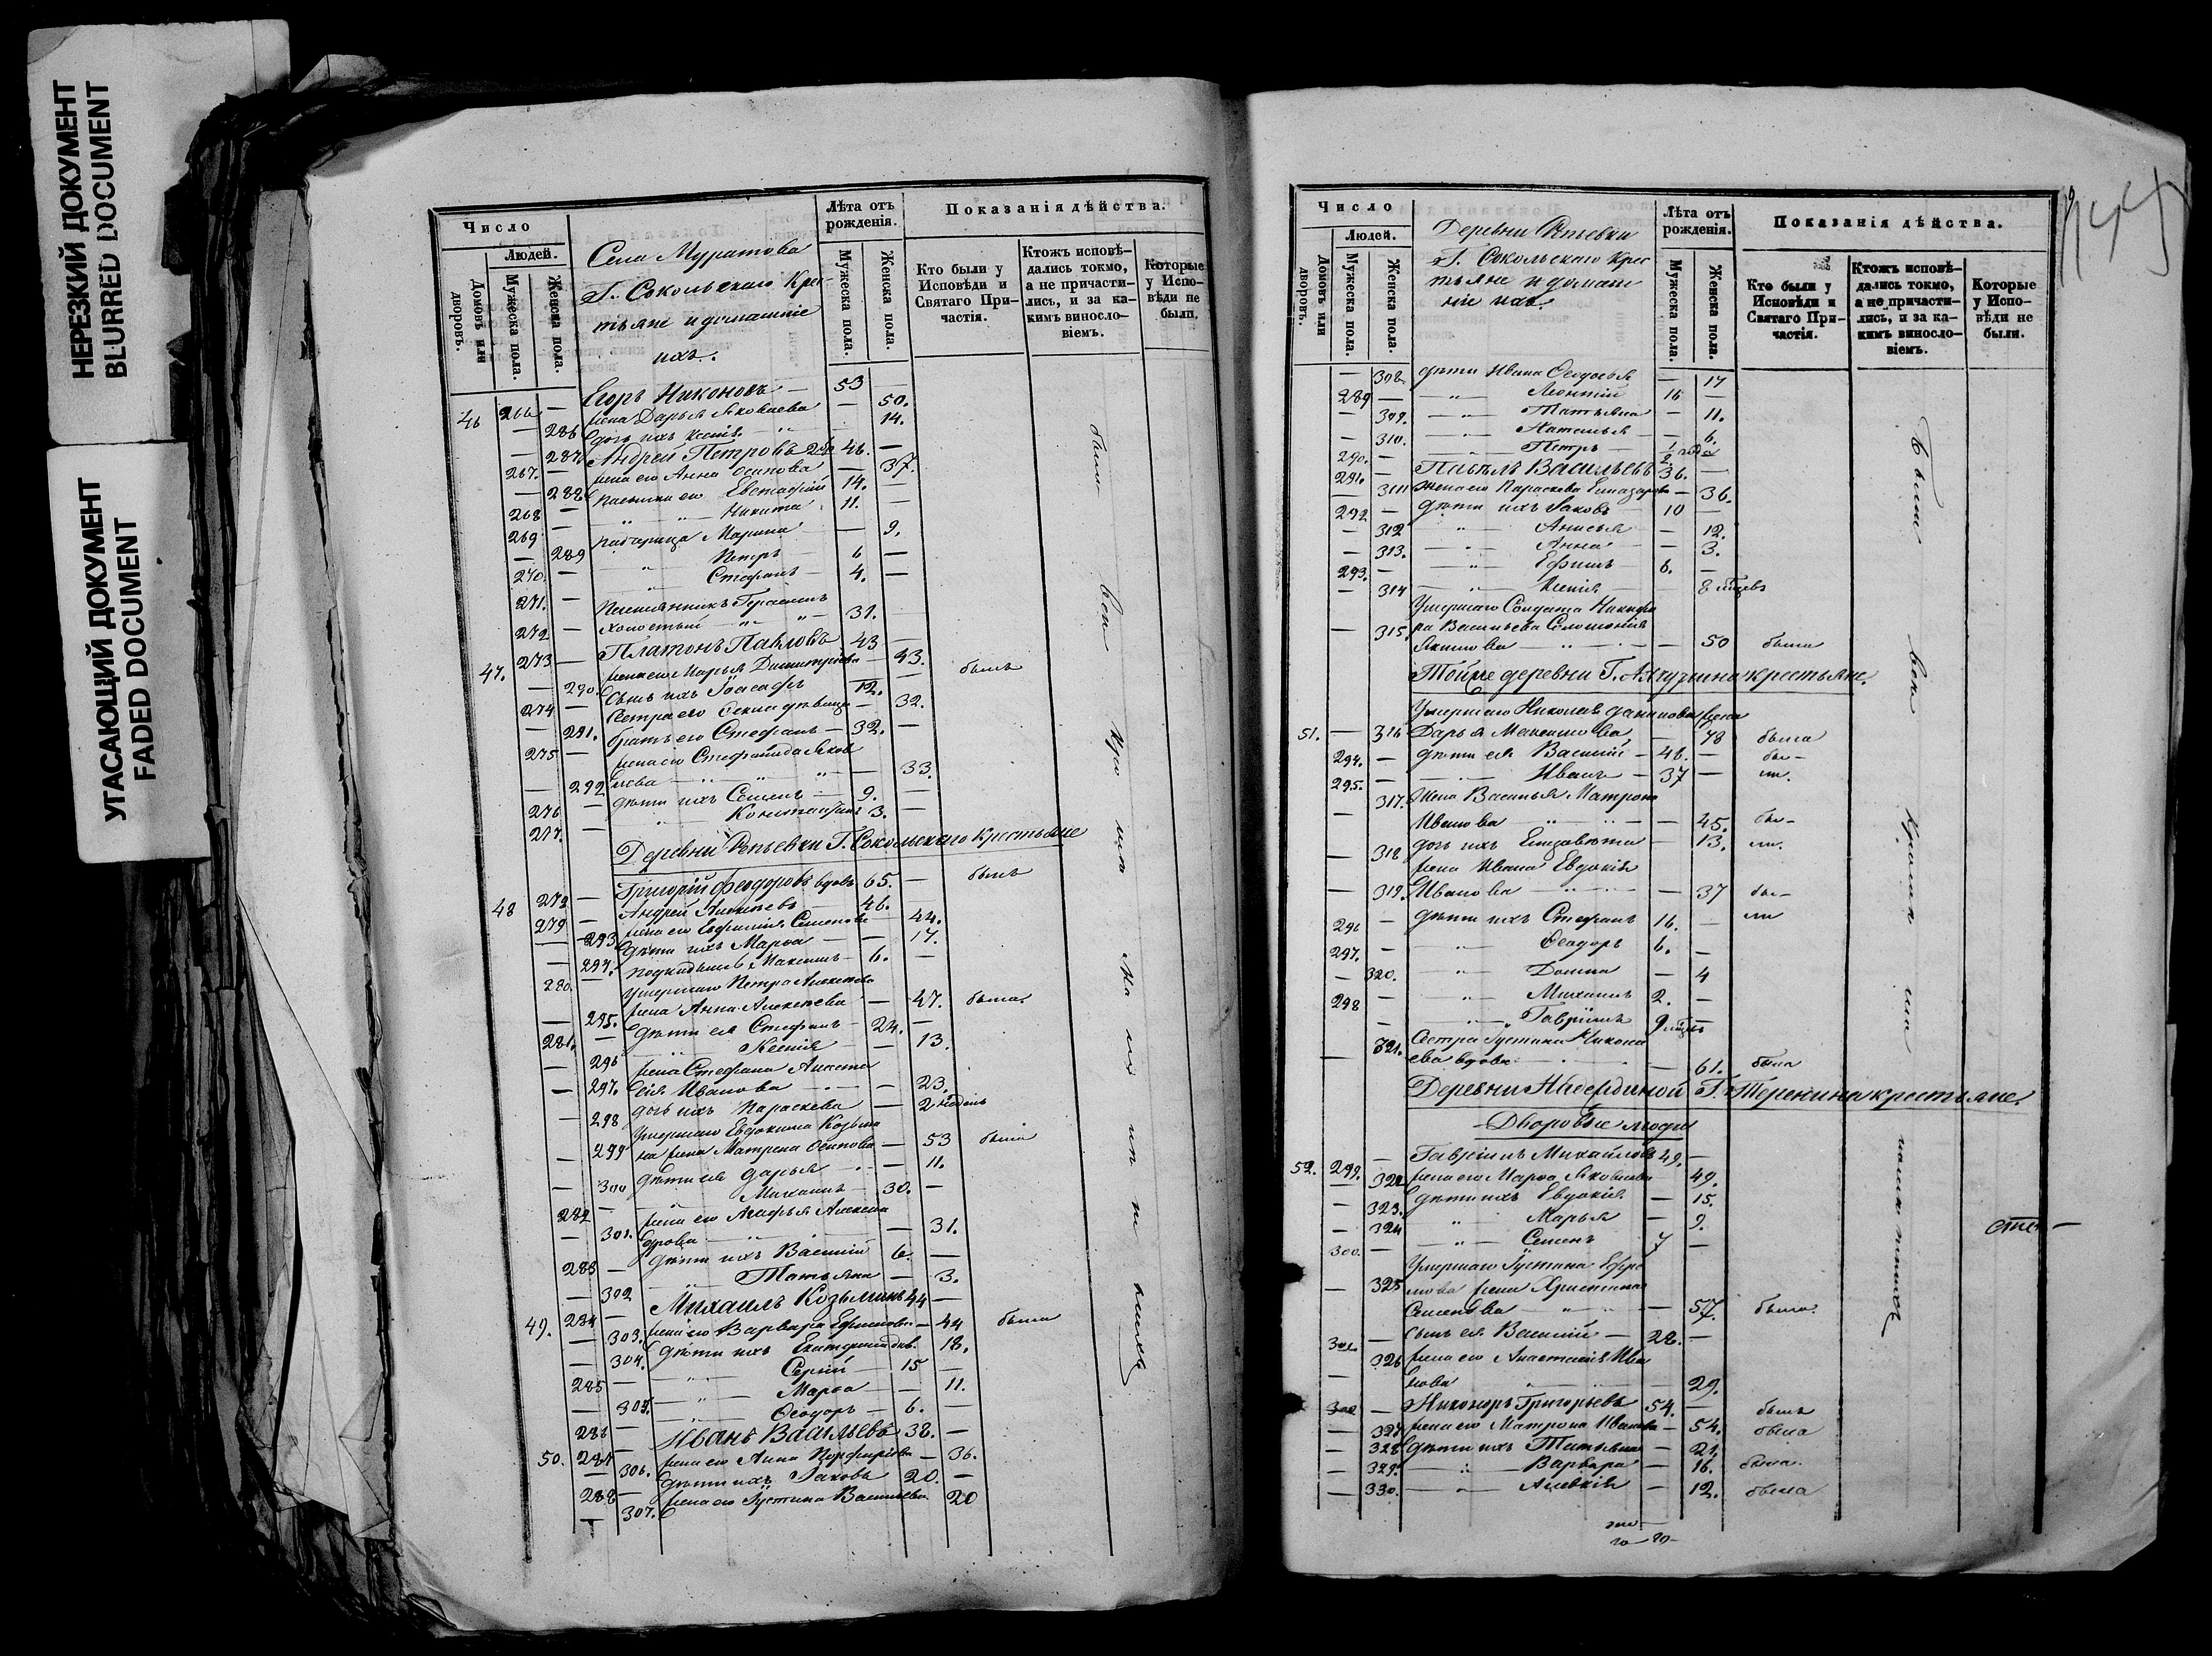 НЕРЕЗКИЙ ДОКУМЕНТ
BLURRED DOCUMENT
УГАСАЮЩИЙ ДОКУМЕНТ
FADED DOCUMENT
Число
Людей.
Домовъ или дворовъ.
Мужеска пола.
Женска пола.
Села Муратова
Г. Сокольскаго Крес-
тьяне и домашніе
ихъ.
Лѣта отъ рожденія.
Мужеска пола.
Женска пола.
Показанія дѣйства.
Кто были у Исповѣди и Святаго Причастія.
Ктожъ исповѣдались токмо, а не причастились, и за какимъ винословіемъ.
Которые у Исповѣди не были.
46 266 — Егоръ Никоновъ — 53 —
— 286 жена Дарья Яковлева — 50.
дочь ихъ Ксенія 14.
— 287 Андрей Петровъ 46. —
267. — жена его Анна Осипова — 37.
— 288 Евстафій 14. —
268 — Никита 11. —
269 Марина — 9.
— 289 Петръ 6 —
270. — Стефанъ 4. —
271. — племянникъ Герасимъ
272 — холостый 31. —
47. 273 — Платонъ Павловъ 43 —
жена его Марья Димитріева — 43. былъ
— 290. сынъ ихъ Іоасафъ 12. —
274 — Сестра его девица — 32.
— 291. братъ его Стефанъ — 32. —
275 — жена его Стефанида Яков
лева — 33.
— 292 дѣти ихъ Семенъ 9. —
276 — Константинъ 3. —
277. —
Деревни Репьевки Г. Сокольскаго крестьяне
48 278 — Григорій Феодоровъ вдовъ 65. — былъ
279 — Андрей Алексѣевъ 46.
— 293 жена его Евфимія Семенова 44.
дѣти ихъ Марѳа — 17.
— 294. подкидышъ Максимъ 6. —
280 Умершаго Петра Алексѣева
— 295. жена Анна Алексѣева — 47. была
281. — дѣти ея Стефанъ — 24. —
Ксенія — 13.
— 296 жена Стефана Анаста
— 297. сія Иванова — 23.
— 298 дочь ихъ Параскева — 2 недѣль
Умершаго Евдокима Козьми
— 299 на жена Матрена Осипова — 53 была
— 300 дѣти ея Дарья — 11.
Михаилъ — 30. —
282 — жена его Агафья Алексан
— 301. дрова — 31.
дѣти ихъ Василій 6. —
283 — Татьяна — 3.
— 302 Михаилъ Козьминъ 44 —
49. 284 — жена его Варвара Ефимова — 44 была
— 303. дѣти ихъ Екатерина дѣв. 18.
— 304. Сергій — 15 —
285 — Марѳа — 11.
— 305. Ѳеодоръ — 6. —
286 — Иванъ Васильевъ 38. —
50. 287 жена его Анна Порфирова — 36.
— 306. дѣти ихъ Яковъ 20. —
288 — жена его Іустина Васильева 20
— 307.
были вси
144
Число
Людей.
Домовъ или дворовъ.
Мужеска пола.
Женска пола.
Деревни Репьевки
Г. Сокольскаго крес
тьяне и домаш
ніе ихъ.
Лѣта отъ рожденія.
Мужеска пола.
Женска пола.
Показанія дѣйства.
Кто были у Исповѣди и Святаго Причастія.
Ктожъ исповѣдались токмо, а не причастились, и за какимъ винословіемъ.
Которые у Исповѣди не были.
— 308 дѣти Ивана Ѳеодосья — 17
289 — Леонтій 16 —
— 309. Татьяна — 11.
— 310. Наталья — 6.
290. — Петръ 2 года
291. — Павелъ Васильевъ 36. —
— 311 жена его Параскева — 36.
292 — дѣти ихъ Яковъ 10 —
— 312 Анисья — 12.
— 313. Анна — 3.
293. — Ефимъ 6. —
— 314 Ксенія 8 мѣсяцевъ
Умершаго Солдата Никифо
— 315. ра Васильева Соломонія
Якимова — 50 была
Тойже деревни Г. крестьяне.
Умершаго Николая Данилова жена
51. — 316 Дарья Максимова — 78 была
294. — дѣти ея Василій — 46. — бы-
295. — Иванъ — 37 — ли.
317. Жена Василья Матрона
— Иванова — 45. бы-
— 318 дочь ихъ Елизавета — 13. ли.
жена Ивана Евдокія
— 319. Иванова — 37 бы-
296 — дѣти ихъ Стефанъ 16. — ли
297. — Ѳеодоръ 6. —
— 320. Домна — 4
298 — Михаилъ 2. —
— Гавріилъ 9 мѣсяц
321. Сестра Іустина Никола
— ева вдова — 61. была
Деревни Г. Теренина крестьяне.
Дворовые люди
52. 299. — Гавріилъ Михайловъ 49. —
— 322 жена его Марѳа Яковлева 49.
— 323. дѣти ихъ Евдокія — 15.
— 324 Марья — 9.
300. — Семенъ 7 —
Умершаго Іустина Ефре
— 325 мова жена Христина
Семенова — 57. была
301 — сынъ ея Василій — 28. —
326 жена его Анастасія Ива
— нова 29.
302 — Никаноръ Григорьевъ 54. — былъ
— 327 жена его Матрона Иванова — 54. была
— 328 дѣти ихъ Татьяна — 21.
— 329. Варвара — 16. была
— 330. — 12. была
были вси